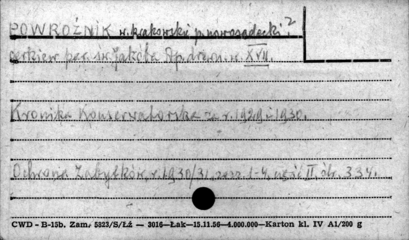 POWROŹNIK w. krakowski p. nowosądecki 2
cerkiew par. św. Jakóba Ap. drewn. w. XVII.
Kronika Konserwatorska za r. 1929 i 1930.
Ochrona Zabytków, r. 1930/31, zesz. 1-4, część II, str. 334.
CWD - B-15b. Zam. 5823/S/ŁŻ — 3016—Łak—15.11.56—4.000.000—Karton kl. IV A1/200 g